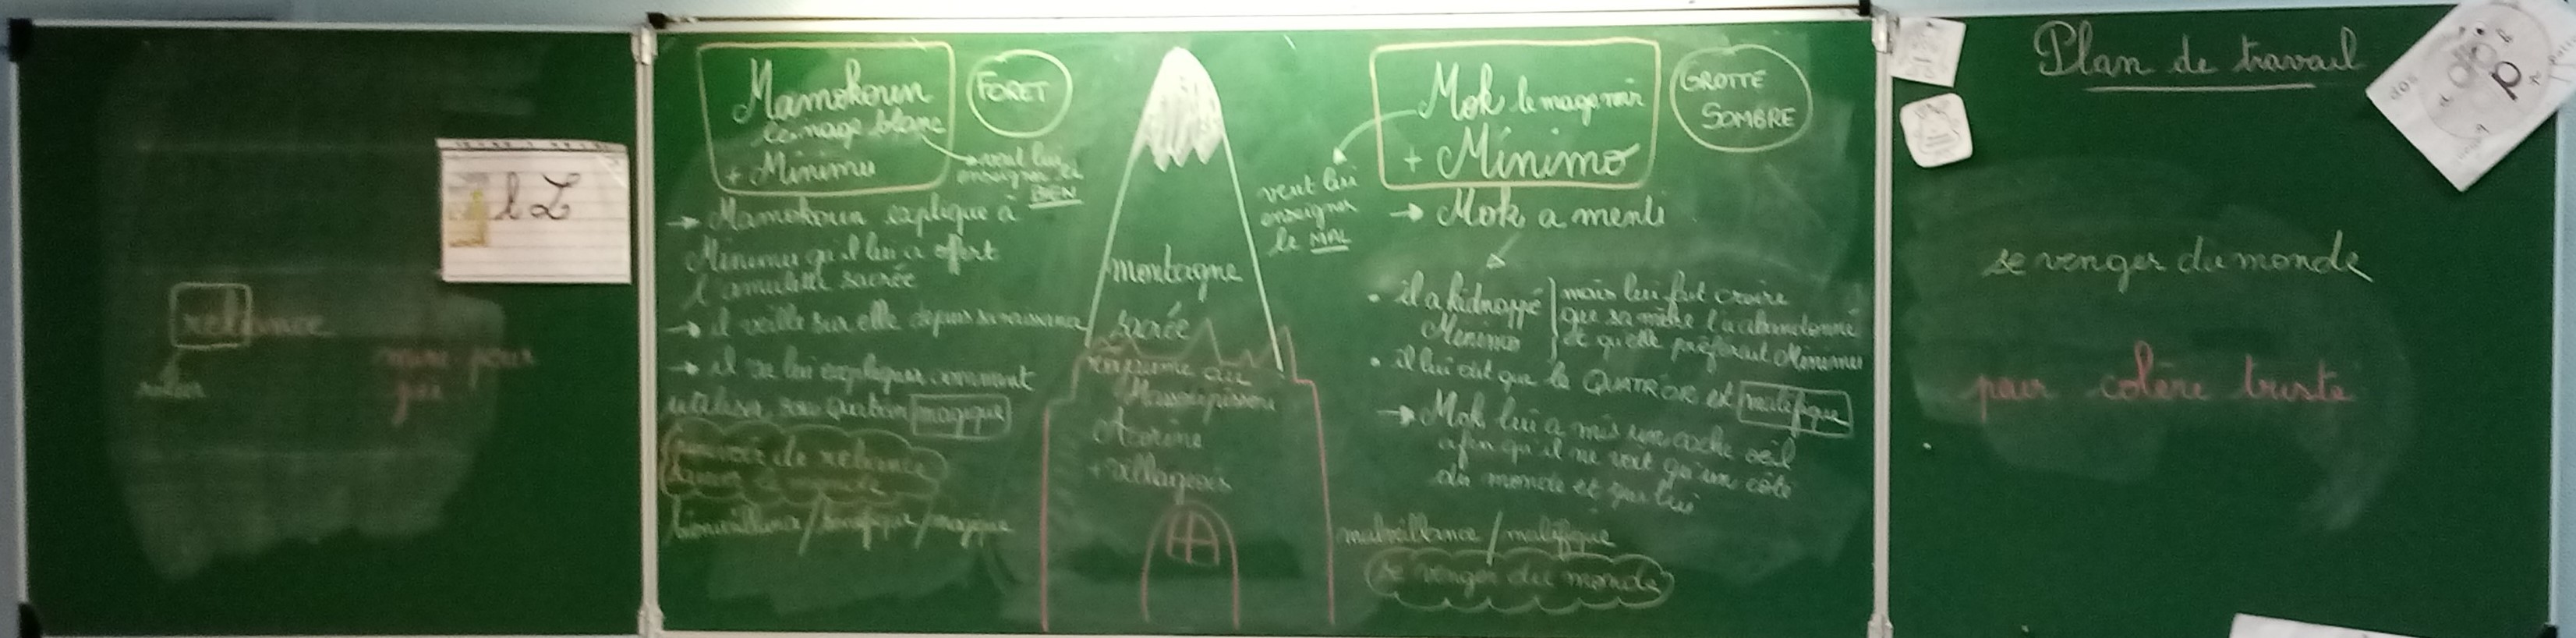 l Z
relance
mine pour
Mamokoun
le mage blanc
+ Minimu
FORET
veut lui
enseigner le
BIEN
→ Mamokoun explique à
Minimu qu'il lui a offert
l'amulette sacrée
→ il veille sur elle depuis sa naissance
→ il va lui expliquer comment
utiliser son magique
pouvoir de relance
le monde
bienveillance / bénéfique / magique
montagne
sacrée
royaume du
Acorine
+ villageois
Mok le mage noir
+ Minimo
GROTTE
SOMBRE
veut lui
enseigner
le MAL
→ Mok a menti
• il a kidnappé
Minimo
mais lui fait croire
que sa mère l'a abandonné
et qu'elle préférait Minimu
• il lui dit que le QUATR'OR est maléfique
→ Mok lui a mis un cache œil
afin qu'il ne voit qu'un côté
du monde et que lui
malveillance / maléfique
se venger du monde
Plan de travail
se venger du monde
peur colère triste
dos
p